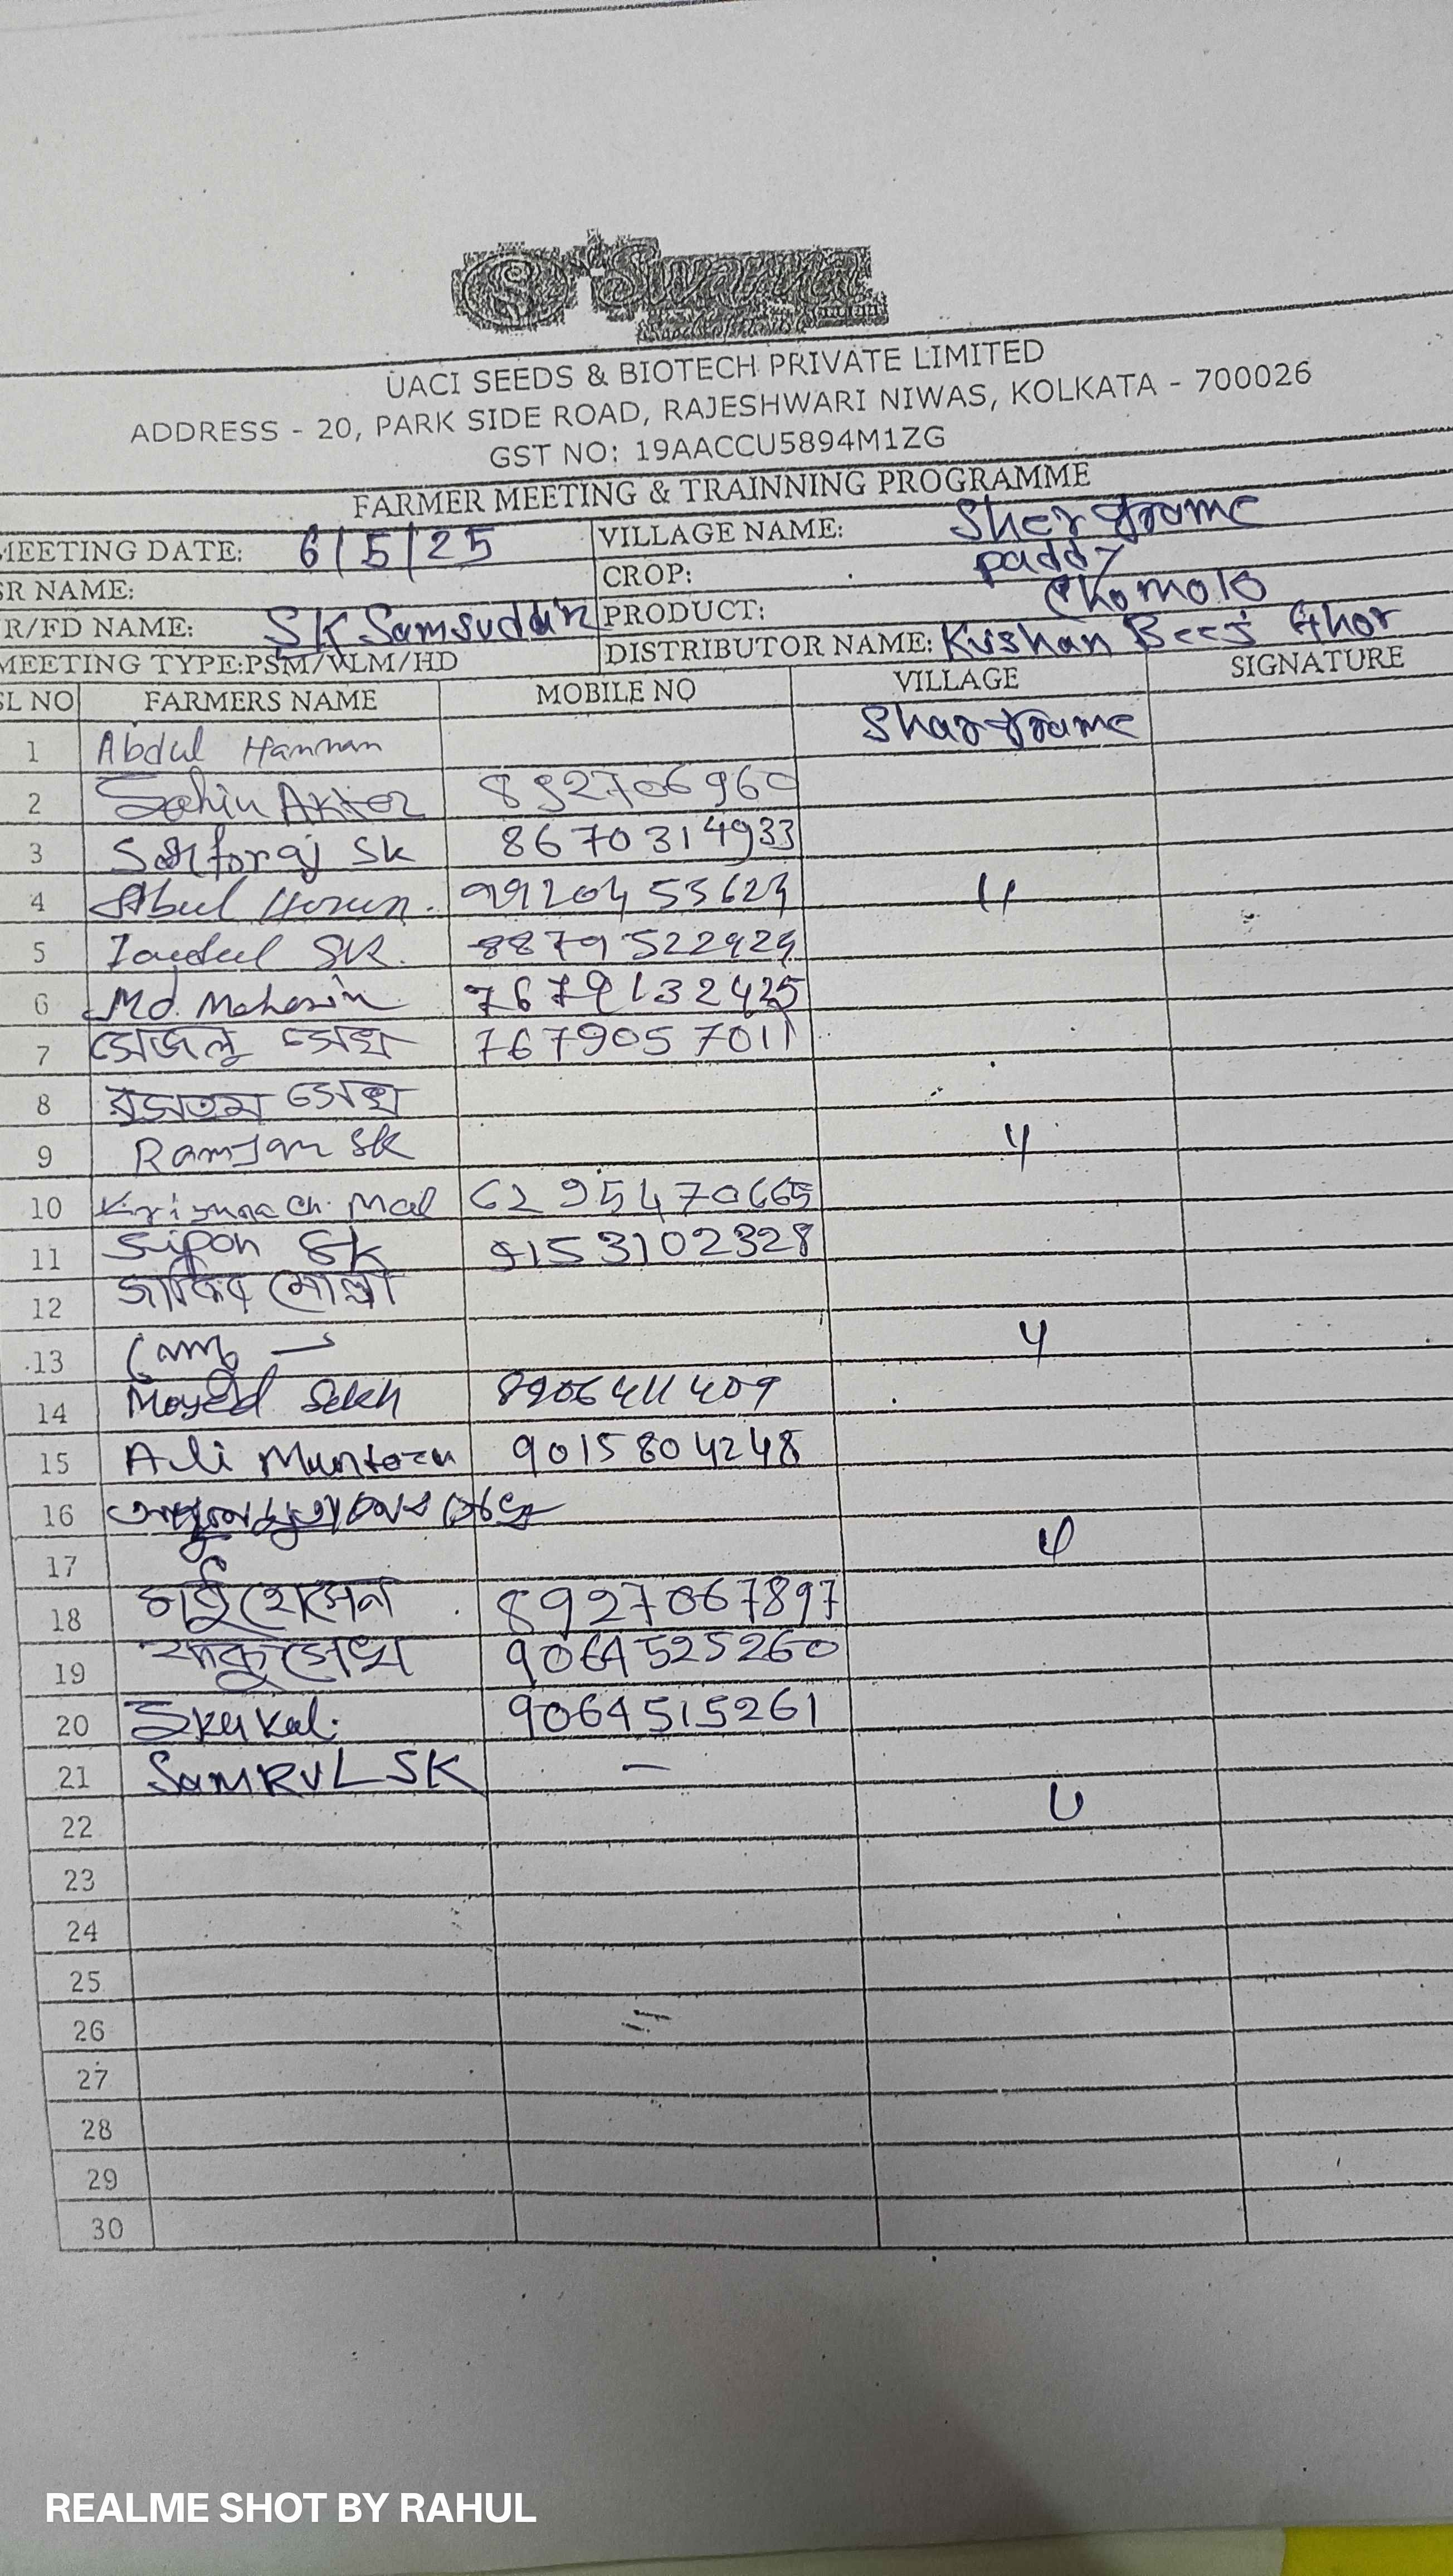 Swarna
UACI SEEDS & BIOTECH PRIVATE LIMITED
ADDRESS - 20, PARK SIDE ROAD, RAJESHWARI NIWAS, KOLKATA - 700026
GST NO: 19AACCU5894M1ZG
FARMER MEETING & TRAINNING PROGRAMME
MEETING DATE: 6/5/25 VILLAGE NAME: Shergrame
SR NAME: CROP: paddy
R/FD NAME: SK Samsuddin PRODUCT:
MEETING TYPE:PSM/VLM/HD DISTRIBUTOR NAME: Krishan Beej Ghor
SL NO FARMERS NAME MOBILE NO VILLAGE SIGNATURE
1 Abdul Hannan Shargrame
2 Sahin Akter 892706960
3 Sarforaj Sk 8670314933
4 Abul 9920453623 "
5 SK. 8879522929
6 Md. Mohasin 7679132425
7 সেজলু সেখ 7679057011
8 রুসতম সেখ
9 Ramjan Sk "
10 Krisuna Ch. Mal 6295470665
11 Sipon Sk 9153102328
12 জাকির মোল্লা
13 "
14 Moyed Sekh 8906411409
15 Ali Muntozu 9015804248
16
17 "
18 হোসেন 8927067897
19 সেখ 9064525260
20 9064515261
21 SAMRUL SK —
22 "
23
24
25
26
27
28
29
30
REALME SHOT BY RAHUL